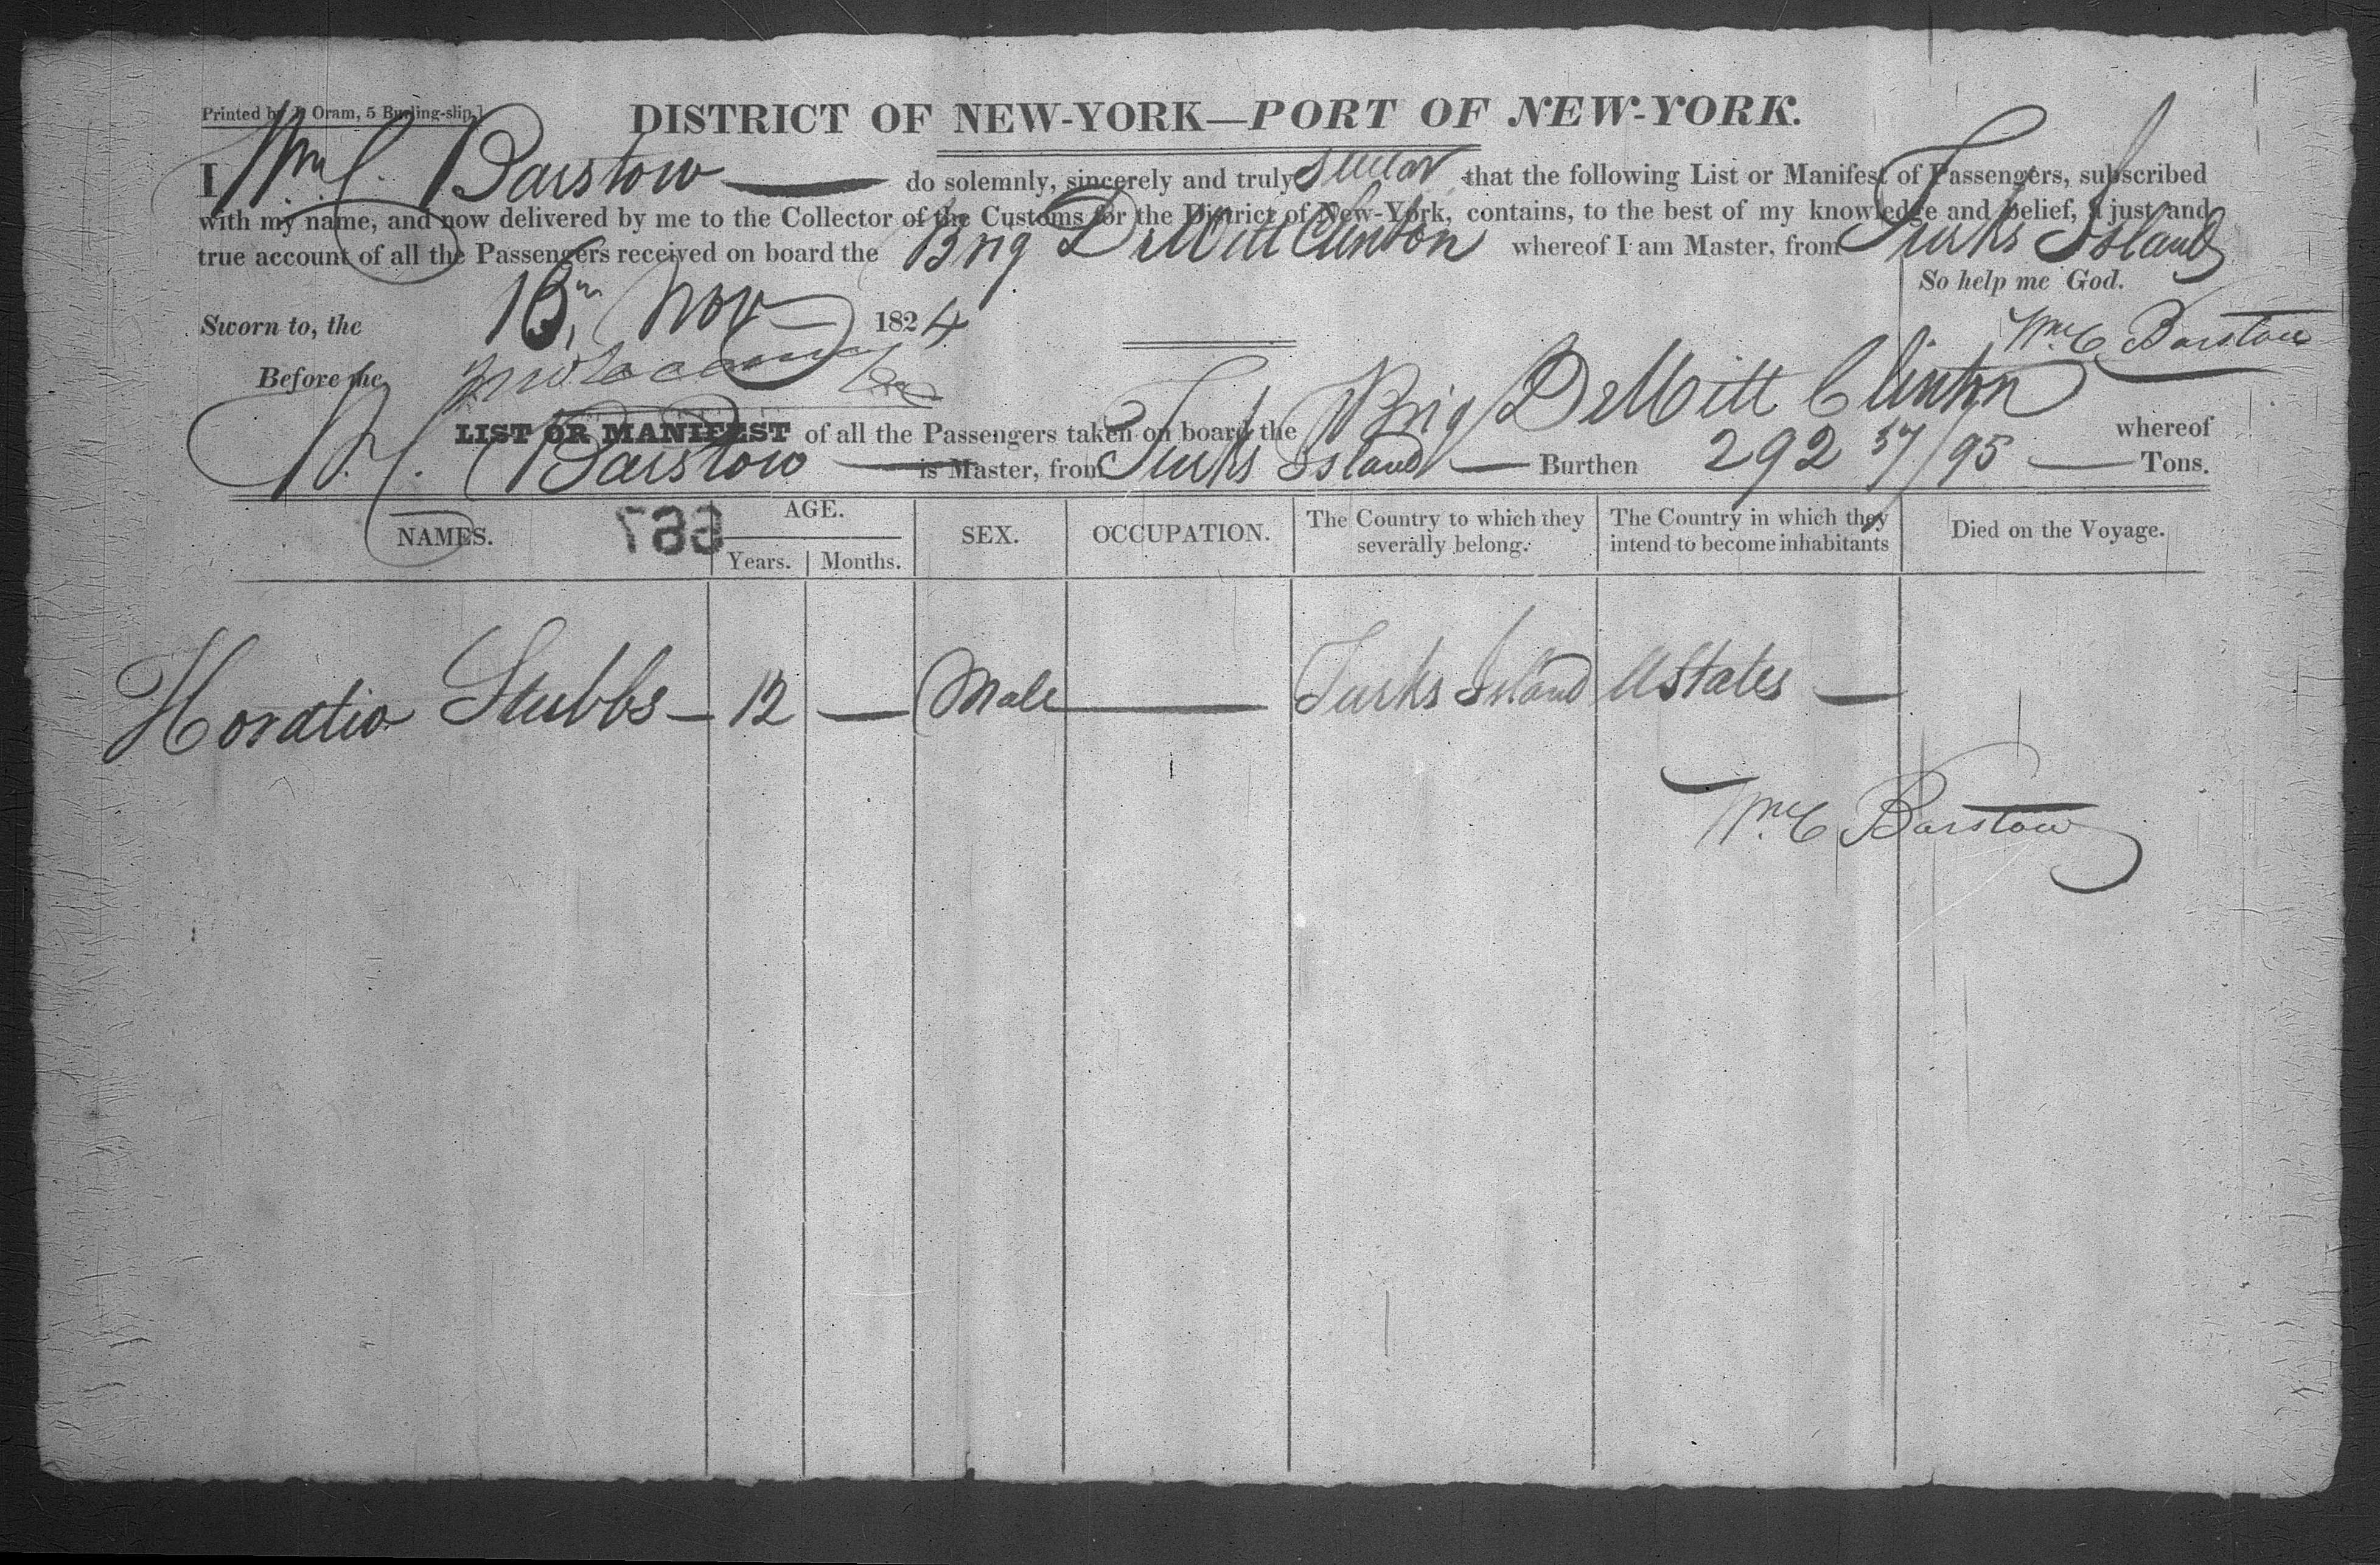 Printed by J. Oram, 5 Burling-slip.]
DISTRICT OF NEW-YORK—PORT OF NEW-YORK.
I Wm C. Barstow do solemnly, sincerely and truly swear that the following List or Manifest of Passengers, subscribed
with my name, and now delivered by me to the Collector of the Customs for the District of New-York, contains, to the best of my knowledge and belief, a just and
true account of all the Passengers received on board the Brig DeWitt Clinton whereof I am Master, from Turks Island
So help me God.
Sworn to, the Nov 1824
Wm C Barstow
Before me,
LIST OR MANIFEST of all the Passengers taken on board the Brig DeWitt Clinton whereof
W. C. Barstow is Master, from Turks Island — Burthen 292 57/95 — Tons.
NAMES. 667 AGE. Years. Months. SEX. OCCUPATION. The Country to which they severally belong. The Country in which they intend to become inhabitants Died on the Voyage.
Horatio Stubbs — 12 — Male — Turks Island UStates —
Wm C Barstow